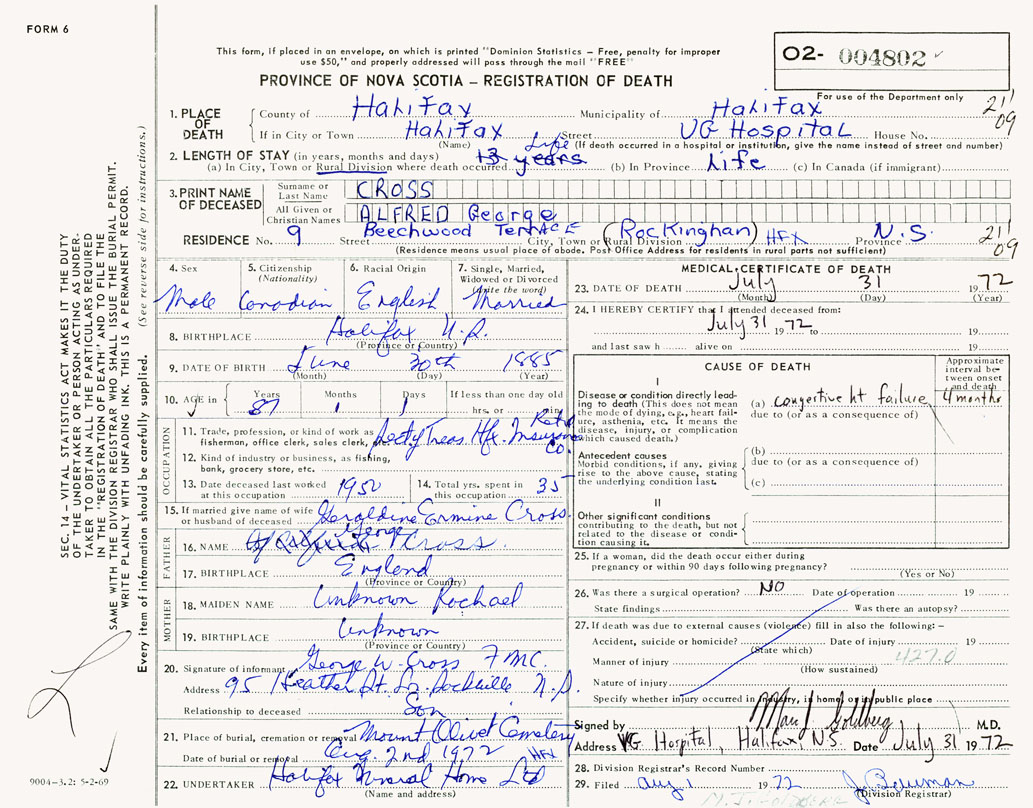 FORM 6
This form, if placed in an envelope, on which is printed "Dominion Statistics – Free, penalty for improper
use $50," and properly addressed will pass through the mail "FREE"
PROVINCE OF NOVA SCOTIA – REGISTRATION OF DEATH
02- 004802
For use of the Department only
211
09
1. PLACE OF DEATH
County of Halifax Municipality of Halifax
If in City or Town Halifax Street VG Hospital House No.
(Name) (If death occurred in a hospital or institution, give the name instead of street and number)
2. LENGTH OF STAY (in years, months and days) Life
(a) In City, Town or Rural Division where death occurred 13 years (b) In Province Life (c) In Canada (if immigrant)
3. PRINT NAME OF DECEASED
Surname or Last Name CROSS
All Given or Christian Names ALFRED George
RESIDENCE No. 9 Street Beechwood Terrace City, Town or Rural Division (Rockinghan) HFX Province N.S.
211
09
(Residence means usual place of abode. Post Office Address for residents in rural parts not sufficient)
4. Sex Male
5. Citizenship (Nationality) Canadian
6. Racial Origin English
7. Single, Married, Widowed or Divorced (Write the word) Married
8. BIRTHPLACE Halifax N.S.
(Province or Country)
9. DATE OF BIRTH June 30th 1885
(Month) (Day) (Year)
10. AGE in Years 87 Months 1 Days 1 If less than one day old
hrs. or min.
OCCUPATION
11. Trade, profession, or kind of work as
fisherman, office clerk, sales clerk, Secty Treas. Hfx. Insurance Co.
12. Kind of industry or business, as fishing,
bank, grocery store, etc.
13. Date deceased last worked at this occupation 1950
14. Total yrs. spent in this occupation 35
15. If married give name of wife
or husband of deceased Geraldine Ermine Cross
FATHER
16. NAME George Cross.
17. BIRTHPLACE England
(Province or Country)
MOTHER
18. MAIDEN NAME Unknown Rachael
19. BIRTHPLACE Unknown
(Province or Country)
20. Signature of informant George W. Cross
Address 95 Heather St. N.S.
Relationship to deceased Son
21. Place of burial, cremation or removal Mount Olivet Cemetery
Date of burial or removal Aug. 2nd 1972 HFX
22. UNDERTAKER Halifax Funeral Home Ltd
(Name and address)
MEDICAL CERTIFICATE OF DEATH
23. DATE OF DEATH July 31 1972
(Month) (Day) (Year)
24. I HEREBY CERTIFY that I attended deceased from:
July 31 1972 to 19
and last saw h alive on 19
CAUSE OF DEATH
Approximate interval between onset and death
I
Disease or condition directly leading to death (This does not mean the mode of dying, e.g., heart failure, asthenia, etc. It means the disease, injury, or complication which caused death.)
(a) congestive ht failure 4 months
due to (or as a consequence of)
Antecedent causes
Morbid conditions, if any, giving rise to the above cause, stating the underlying condition last.
(b)
due to (or as a consequence of)
(c)
II
Other significant conditions
contributing to the death, but not related to the disease or condition causing it.
25. If a woman, did the death occur either during
pregnancy or within 90 days following pregnancy?
(Yes or No)
26. Was there a surgical operation? NO Date of operation 19
State findings Was there an autopsy?
27. If death was due to external causes (violence) fill in also the following: –
Accident, suicide or homicide? Date of injury 19
(State which)
427.0
Manner of injury
(How sustained)
Nature of injury
Specify whether injury occurred in industry, in home, or in public place
Signed by Goldberg M.D.
Address VG Hospital, Halifax, N.S. Date July 31 1972
28. Division Registrar's Record Number
29. Filed Aug 1 1972
(Division Registrar)
SEC. 14 – VITAL STATISTICS ACT MAKES IT THE DUTY
OF THE UNDERTAKER OR PERSON ACTING AS UNDER-
TAKER TO OBTAIN ALL THE PARTICULARS REQUIRED
IN THE "REGISTRATION OF DEATH" AND TO FILE THE
SAME WITH THE DIVISION REGISTRAR WHO SHALL ISSUE THE BURIAL PERMIT.
WRITE PLAINLY WITH UNFADING INK. THIS IS A PERMANENT RECORD.
Every item of information should be carefully supplied. (See reverse side for instructions.)
9004-3.2: 5-2-69